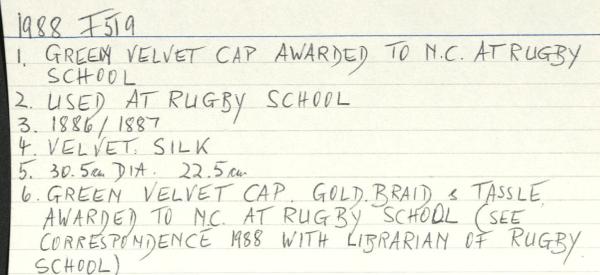 1988 F519
1. GREEN VELVET CAP AWARDED TO N.C. AT RUGBY
SCHOOL
2. USED AT RUGBY SCHOOL
3. 1886/1887
4. VELVET. SILK
5. 30.5cm DIA. 22.5cm
6. GREEN VELVET CAP. GOLD. BRAID & TASSLE.
AWARDED TO N.C. AT RUGBY SCHOOL (SEE
CORRESPONDENCE 1988 WITH LIBRARIAN OF RUGBY
SCHOOL)